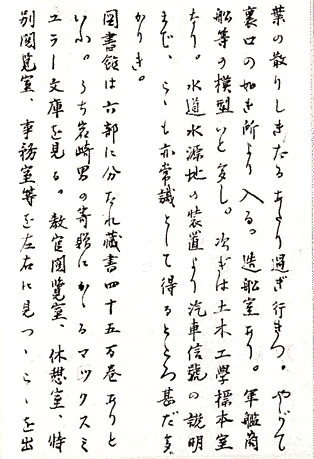 葉の散りしきたるあたり過ぎ行きつ。やがて
裏口の如き所より入る。造船室あり。軍艦商
船等の模型いと多し。次ぎは土木工學標本室
なり。水道水源地の装置より汽車信號の説明
まで、こゝも亦常識として得るところ甚だ多
かりき。
圖書館は六部に分たれ藏書四十五万巻ありと
いふ。うち岩崎男の寄贈にかゝるマックスミ
ュラー文庫を見る。教官閲覽室、休憩室、特
別閲覽室、事務室等を左右に見つゝこゝを出